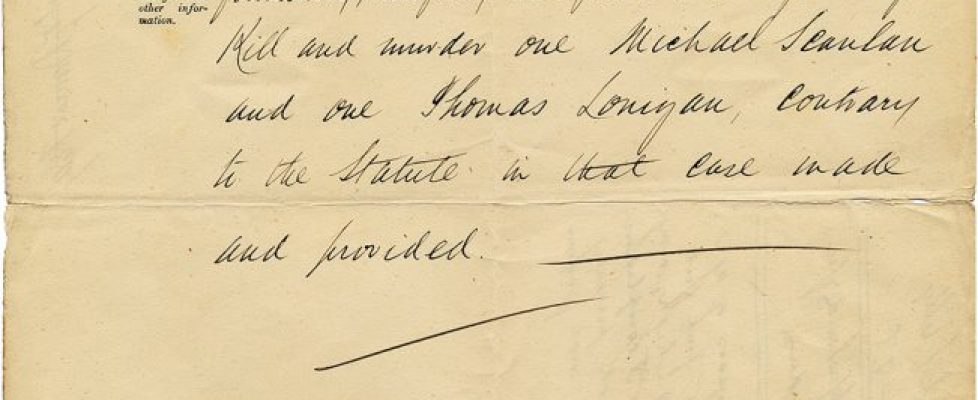 other infor-
mation.
Kill and murder one Michael Scanlan
and one Thomas Lonigan, contrary
to the Statute in that case made
and provided.